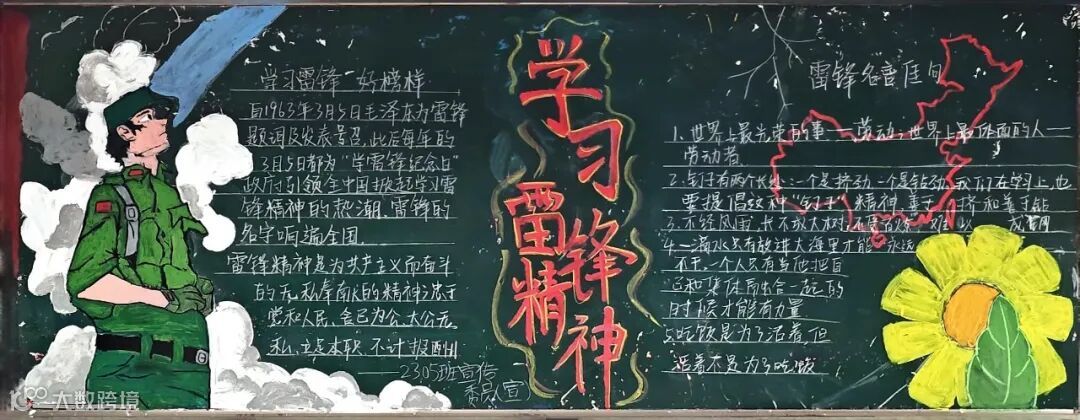 学习雷锋 好榜样
自1963年3月5日毛泽东为雷锋
题词及发表号召,此后每年的
3月5日都为"学雷锋纪念日"
政府引领全中国掀起学习雷
锋精神的热潮.雷锋的
名字响遍全国.
雷锋精神是为共产主义而奋斗
的无私奉献的精神忠于
党和人民、舍己为公、大公无
私、立足本职、不计报酬
——2305班宣传
委员 宣
学习
雷锋
精神
雷锋名言
1、世界上最光荣的事——劳动;世界上最体面的人——
劳动者.
2、钉子有两个长处:一个是挤劲,一个是钻劲,我们在学习上,也
要提倡这种"钉子"精神,善于挤和善于钻
3、不经风雨,长不成大树,不受百炼,难以成钢
4、一滴水只有放进大海里才能永远
不干,一个人只有当他把自
己和集体融合一起的
时候才能有力量
5、吃饭是为了活着,但
活着不是为了吃饭
大数跨境